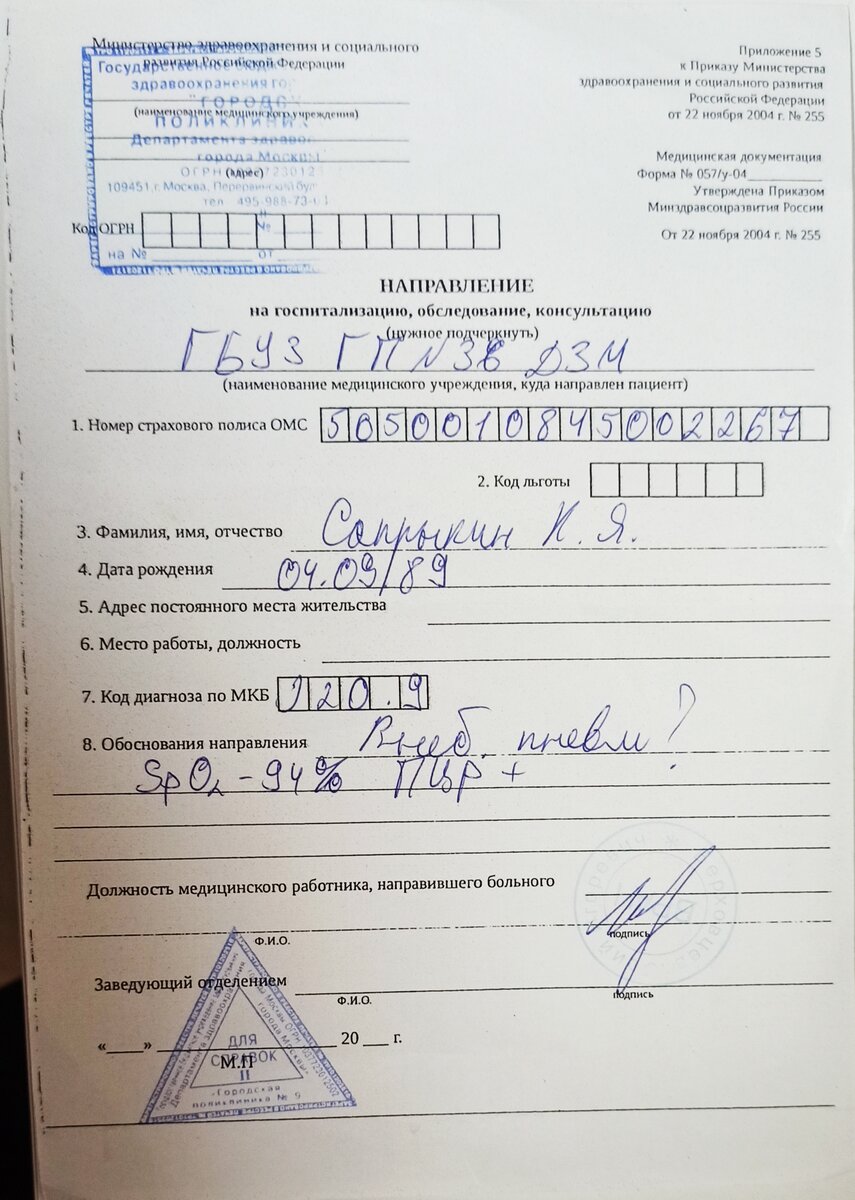 Министерство здравоохранения и социального
развития Российской Федерации
Государственное
здравоохранения
"ГОРОДС
(наименование медицинского учреждения)
ПОЛИКЛИНИК
Департамента
города Москв
(адрес)
109451 г. Москва,
тел. 495-988-73-
Код ОГРН
№
на № от
Приложение 5
к Приказу Министерства
здравоохранения и социального развития
Российской Федерации
от 22 ноября 2004 г. № 255
Медицинская документация
Форма № 057/у-04
Утверждена Приказом
Минздравсоцразвития России
От 22 ноября 2004 г. № 255
НАПРАВЛЕНИЕ
на госпитализацию, обследование, консультацию
(нужное подчеркнуть)
ГБУЗ ГП №36 ДЗМ
(наименование медицинского учреждения, куда направлен пациент)
1. Номер страхового полиса ОМС 5050010845002267
2. Код льготы
3. Фамилия, имя, отчество Сапрыкин К. Я.
4. Дата рождения 04.09/89
5. Адрес постоянного места жительства
6. Место работы, должность
7. Код диагноза по МКБ J20.9
8. Обоснования направления Внеб. пневм?
SpO2 - 94% ПЦР +
Должность медицинского работника, направившего больного
Ф.И.О. подпись
Заведующий отделением
Ф.И.О. подпись
«____» 20 ___ г.
М.П
ДЛЯ
СПРАВОК
II
«Городская
поликлиника № 9
Департамента здравоохранения
города Москвы»